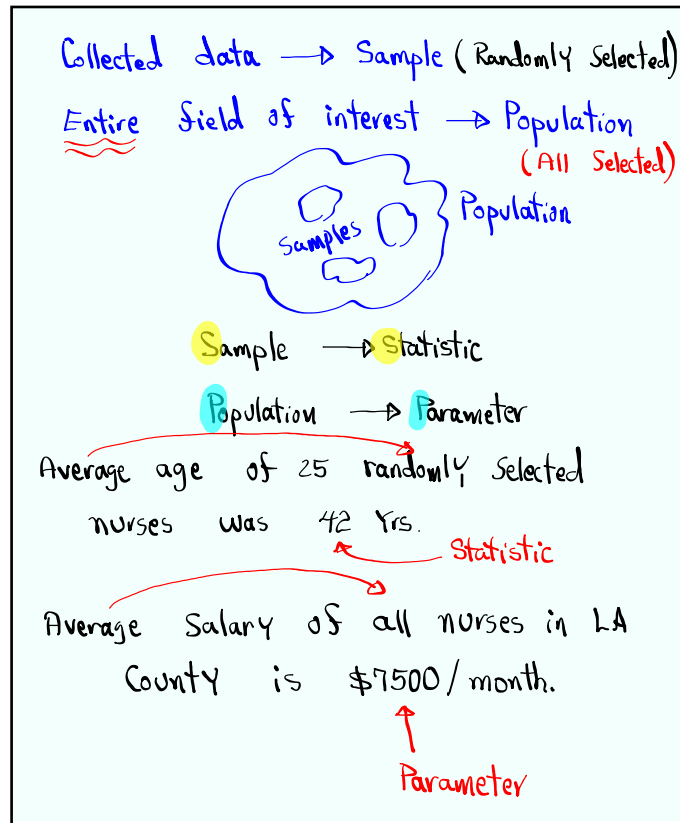 Collected data → Sample (Randomly Selected)
Entire field of interest → Population
(All Selected)
Population
Samples
Sample → Statistic
Population → Parameter
Average age of 25 randomly selected
nurses was 42 Yrs.
Statistic
Average Salary of all nurses in LA
County is $7500/month.
Parameter